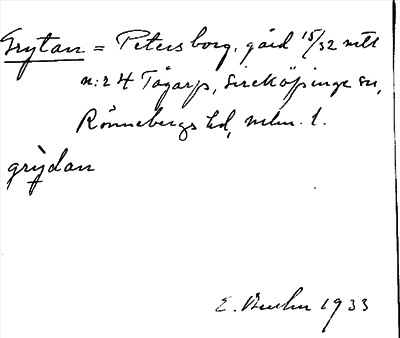 Grytan = Petersborg, gård 15/32 mtl
n:2 4 Tågarp, Sireköpinge sn,
Rönnebergs hd, mlm. l.
grỳdan
E. 1933